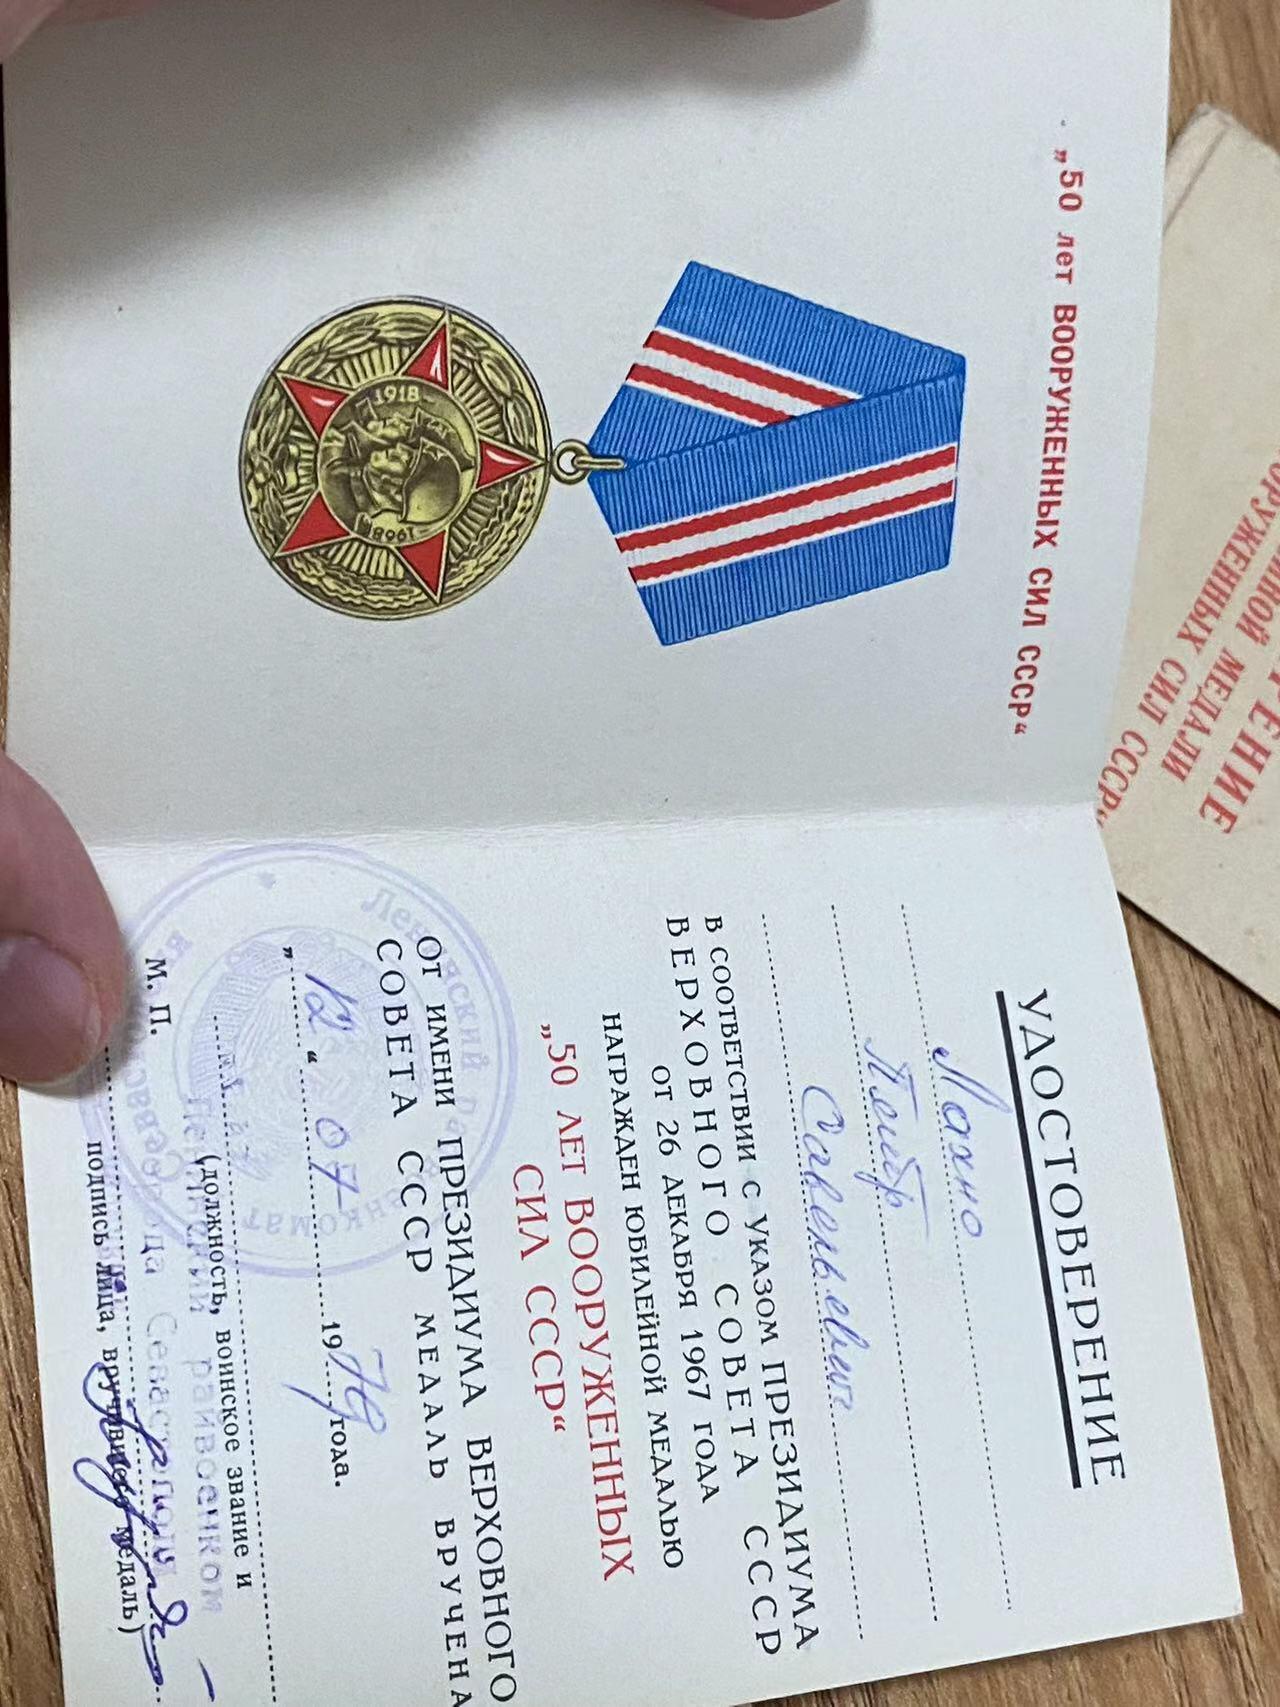 „50 лет ВООРУЖЕННЫХ СИЛ СССР“
1918
1968
УДОСТОВЕРЕНИЕ
Лахно
Петр
Савельевич
В СООТВЕТСТВИИ С УКАЗОМ ПРЕЗИДИУМА
ВЕРХОВНОГО СОВЕТА СССР
ОТ 26 ДЕКАБРЯ 1967 ГОДА
НАГРАЖДЕН ЮБИЛЕЙНОЙ МЕДАЛЬЮ
„50 ЛЕТ ВООРУЖЕННЫХ
СИЛ СССР“
ОТ ИМЕНИ ПРЕЗИДИУМА ВЕРХОВНОГО
СОВЕТА СССР МЕДАЛЬ ВРУЧЕНА
„12“ 07 1970 года.
Ленинский райвоенком
(должность, воинское звание и
города Севастополя
М. П.
подпись лица, вручившего медаль)
Ленинский
МЕДАЛИ
СИЛ СССР“